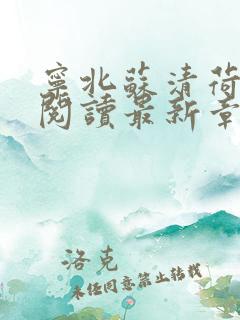 寧北蘇清荷
閱讀最新章
洛克
未經同意禁止转载